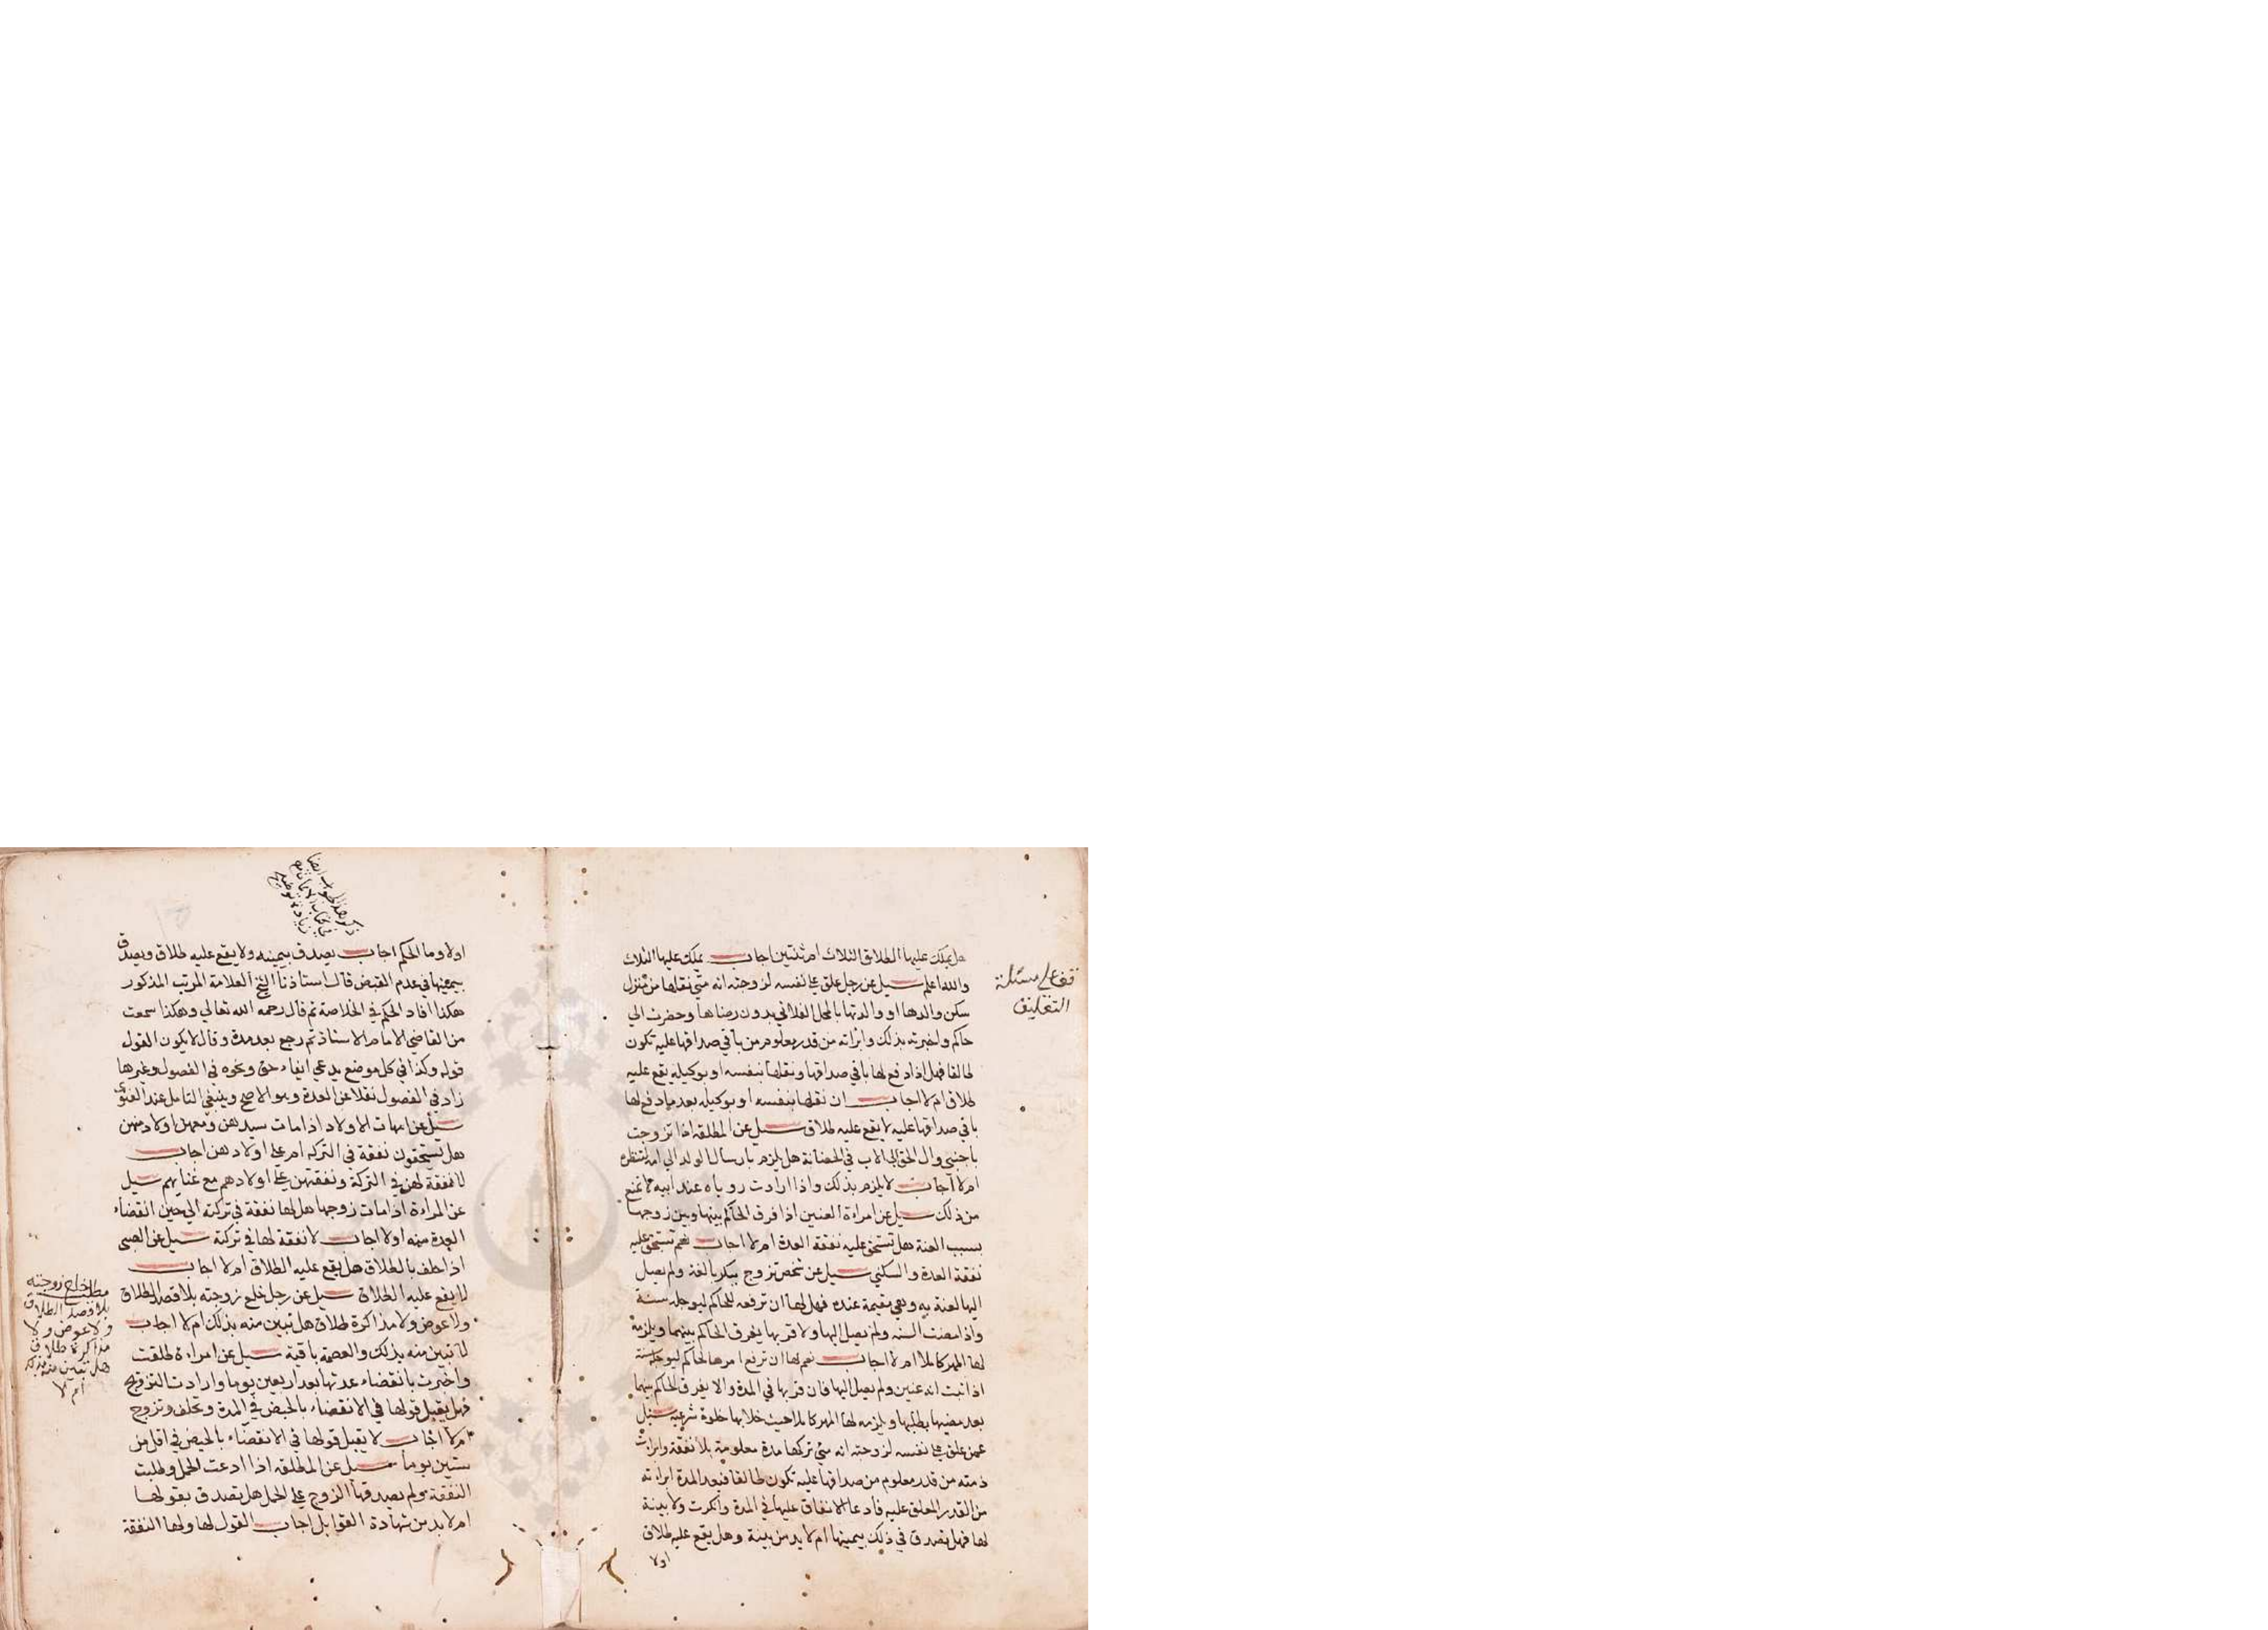 هل يملك عليها الطلاق الثلاث ام ثنتين اجاب يملك عليها الثلاث
والله اعلم سيل عن رجل علق علي نفسه لزوجته انه متي نقلها من منزل
سكن والدها او والدتها بالمحل الفلاني بدون رضاها وحضرت الي
حاكم واخبرته بذلك وابراته من قدر معلوم من باقي صداقها عليه تكون
طالقا فهل اذا دفع لها باقي صداقها ونقلها بنفسه او بوكيله يقع عليه
طلاق ام لا اجاب ان نقلها بنفسه او بوكيله بعد ما دفع لها
باقي صداقها عليه لا يقع عليه طلاق سيل عن المطلقه اذا تزوجت
باجنبي وال الحق الي الاب في الحضانة هل يلزم بارسال الولد الي امه لتنظره
ام لا اجاب لا يلزم بذلك واذا ارادت روياه عند ابيه لا تمنع
من ذلك سيل عن امراءة العنين اذا فرق الحاكم بينها وبين زوجها
بسبب العنة هل تستحق عليه نفقة العدة ام لا اجاب نعم تستحق عليه
نفقة العدة والسكني سيل عن شخص تزوج ببكر بالغة ولم يصل
اليها لعنة به وهي مقيمة عنده فهل لها ان ترفعه للحاكم ليوجله سنة
واذا مضت السنه ولم يصل اليها ولا قربها يفرق الحاكم بينهما ويلزمه
لها المهر كاملا ام لا اجاب نعم لها ان ترفع امرها لحاكم ليوجله سنة
اذا ثبت انه عنين ولم يصل اليها فان قربها في المدة والا يفرق الحاكم بينهما
بعد مضيها بطلبها ويلزمه لها المهر كاملا حيث خلا بها خلوة شرعيه سيل
عمن علق علي نفسه لزوجته انه متي تركها مدة معلومة بلا نفقة وابرات
ذمته من قدر معلوم من صداقها عليه تكون طالقا فبعد المدة ابراته
من القدر المعلق عليه فادعا الانفاق عليها في المدة وانكرت ولا بينة
لها فهل يصدق في ذلك بيمينها ام لا بد من بينة وهل يقع عليه طلاق
اولا
مسئلة
التعليق
اولا وما الحكم اجاب يصدق بيمينه ولا يقع عليه طلاق ويصدق
بيمينها في عدم القبض قال استاذنا الشيخ العلامة المرتب المذكور
هكذا افاد الحكم في الخلاصة ثم قال رحمه الله تعالي وهكذا سمعت
من القاضي الامام الاستاذ ثم رجع بعد مدة وقال لا يكون القول
قوله وكذا في كل موضع يدعي ايفاء حق ونحوه في الفصول وغيرها
زاد في الفصول نقلا عن العدة وهو الاصح وينبغي التامل عند الفتوي
سيل عن امهات الاولاد اذا مات سيدهن ومعهن اولاد منهن
هل تستحقون نفقة في التركه ام علي اولادهن اجاب
لا نفقة لهن في التركة ونفقتهن علي اولادهم مع غنايهم سيل
عن المراءة اذا مات زوجها هل لها نفقة في تركته الي حين انقضاء
العدة منه اولا اجاب لا نفقة لها في تركته سيل عن الصبي
اذا حلف بالطلاق هل يقع عليه الطلاق ام لا اجاب
لا يقع عليه الطلاق سيل عن رجل خلع زوجته بلا قصد الطلاق
ولا عوض ولا مذاكرة طلاق هل تبين منه بذلك ام لا اجاب
لا تبين منه بذلك والعصمة باقية سيل عن امراءة طلقت
واخبرت بانقضاء عدتها بعد اربعين يوما وارادت التزويج
فهل يقبل قولها في الانقضاء بالحيض في المدة وتحلف وتزوج
ام لا اجاب لا يقبل قولها في الانقضاء بالحيض في اقل من
ستين يوما سيل عن المطلقه اذا ادعت الحمل وطلبت
النفقة ولم يصدقها الزوج علي الحمل هل تصدق بقولها
ام لا بد من شهادة القوابل اجاب القول لها ولها النفقة
مطلب خلع زوجته
بلا قصد الطلاق
ولا عوض ولا
مذاكرة طلاق
هل تبين منه بذلك
ام لا